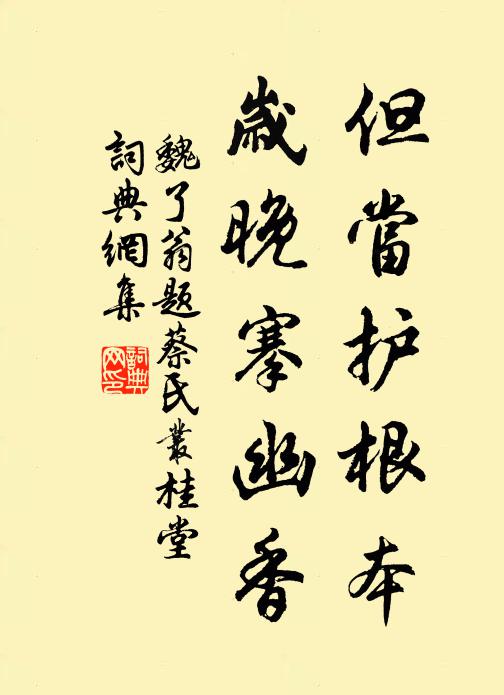 但當护根本
歲晚搴幽香
魏了翁題蔡氏叢桂堂
詞典網集
詞典网印